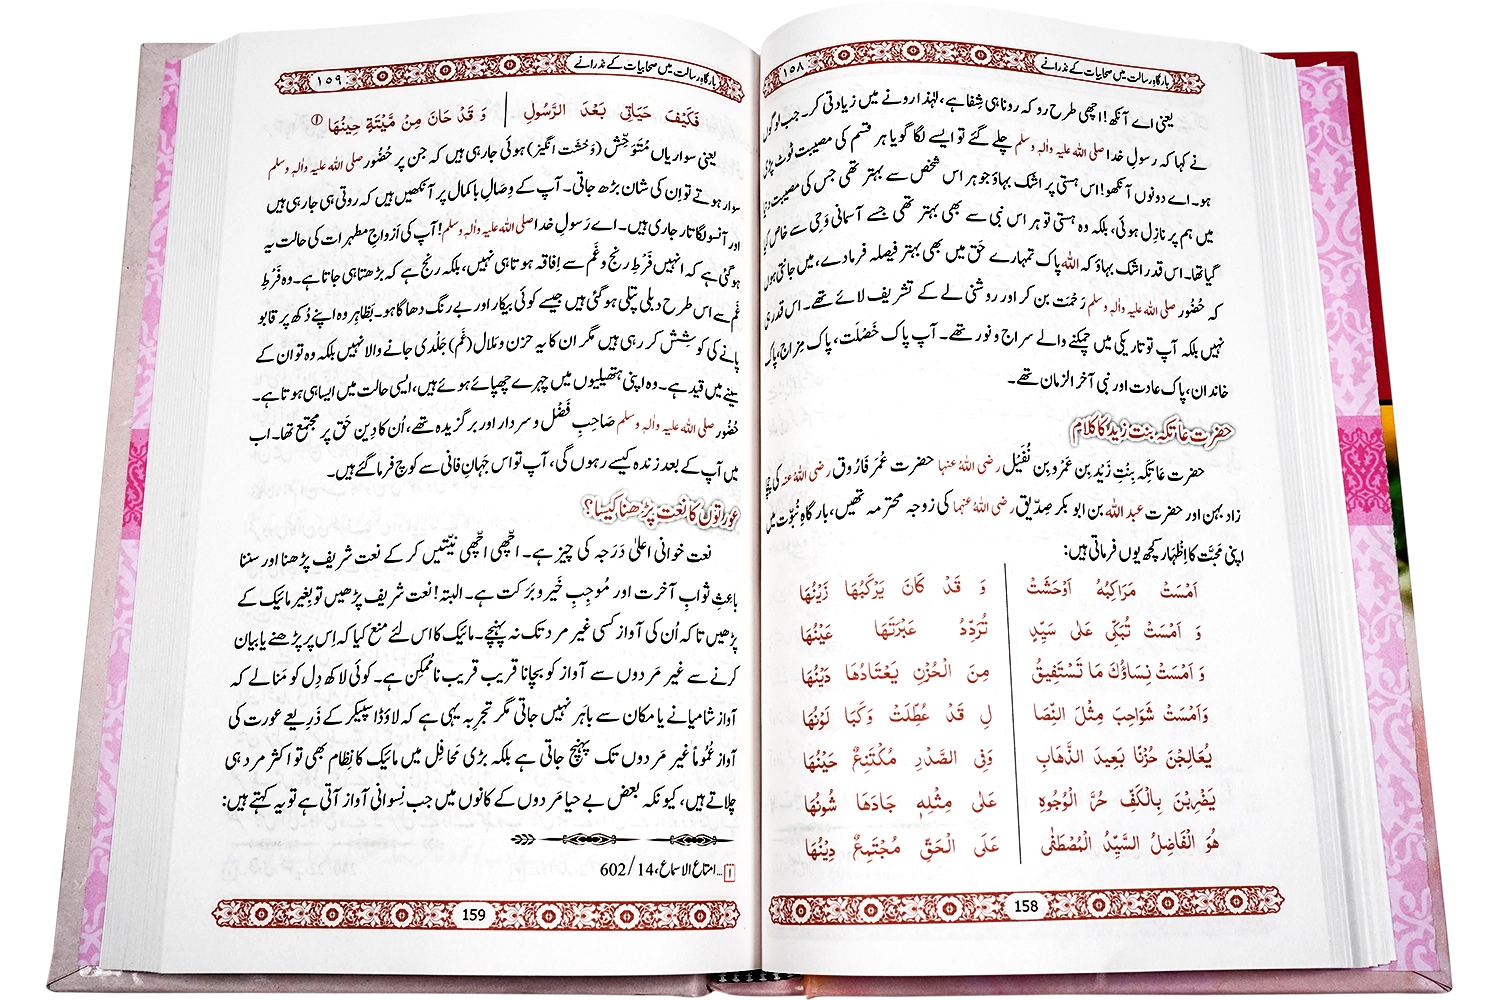 ۱۵۸ بارگاہِ رسالت میں صحابیات کے نذرانے
یعنی اے آنکھ! اچھی طرح رو کہ رونا ہی شِفا ہے، لہٰذا رونے میں زیادتی کر۔ جب لوگوں
نے کہا کہ رسولِ خدا صلی اللہ علیہ واٰلہٖ وسلم چلے گئے تو ایسے لگا گویا ہر قسم کی مصیبت ٹوٹ پڑی
ہو۔ اے دونوں آنکھو! اس ہستی پر اشک بہاؤ جو ہر اس شخص سے بہتر تھی جس کی مصیبت
میں ہم پر نازِل ہوئی، بلکہ وہ ہستی تو ہر اس نبی سے بھی بہتر تھی جسے آسمانی وَحی سے خاص کیا
گیا تھا۔ اس قدر اشک بہاؤ کہ اللہ پاک تمہارے حَق میں بھی بہتر فیصلہ فرمادے، میں جانتی ہوں
کہ حُضُور صلی اللہ علیہ واٰلہٖ وسلم رَحْمَت بن کر اور روشنی لے کے تشریف لائے تھے۔ اس قدر ہی
نہیں بلکہ آپ تو تاریکی میں چمکنے والے سراج و نور تھے۔ آپ پاک خَصْلَت، پاک مِزاج، پاک
خاندان، پاک عادت اور نبی آخر الزمان تھے۔
حضرت عاتکہ بنت زید کا کلام
حضرت عَاتِکَہ بِنْتِ زَیْد بِن عَمْرو بِن نُفَیْل رضی اللہُ عنہا حضرت عُمَر فَارُوق رضی اللہُ عنہ کی چچا
زاد بہن اور حضرت عبد اللہ بن ابو بکر صِدّیق رضی اللہُ عنہما کی زوجہ محترمہ تھیں، بارگاہِ نُبُوَّت میں
اپنی مَحبَّت کا اِظْہار کچھ یوں فرماتی ہیں:
اَمْسَتْ مَرَاکِبُہٗ اَوْحَشَتْ وَ قَدْ کَانَ یَرْکَبُهَا زَیْنُهَا
وَ اَمْسَتْ تُبَکِّی عَلٰی سَیِّدٍ تُرَدِّدُ عَبْرَتَهَا عَیْنُهَا
وَ اَمْسَتْ نِسَاؤُكَ مَا تَسْتَفِیْقُ مِنَ الْحُزْنِ یَعْتَادُهَا دَیْنُهَا
وَاَمْسَتْ شَوَاحِبَ مِثْلَ النِّصَا لِ قَدْ عُطِّلَتْ وَکَبَا لَوْنُهَا
یُعَالِجْنَ حُزْنًا بَعِیدَ الذَّهَابِ وَفِی الصَّدْرِ مُکْتَنِعٌ حَیْنُهَا
یَضْرِبْنَ بِالْکَفِّ حُرَّ الْوُجُوہِ عَلٰی مِثْلِهٖ جَادَهَا شُونُهَا
هُوَ الْفَاضِلُ السَّیِّدُ الْمُصْطَفٰی عَلَی الْحَقِّ مُجْتَمِعٌ دِیْنُهَا
158
۱۵۹ بارگاہِ رسالت میں صحابیات کے نذرانے
فَکَیْفَ حَیَاتِی بَعْدَ الرَّسُولِ وَ قَدْ حَانَ مِنْ مَّیْتَةٍ حِیْنُهَا ①
یعنی سواریاں مُتَوَحِّش (وَحْشَت انگیز) ہوئی جا رہی ہیں کہ جن پر حُضُور صلی اللہ علیہ واٰلہٖ وسلم
سوار ہوتے تو ان کی شان بڑھ جاتی۔ آپ کے وِصَالِ باکمال پر آنکھیں ہیں کہ روتی ہی جا رہی ہیں
اور آنسو لگاتار جاری ہیں۔ اے رَسولِ خدا صلی اللہ علیہ واٰلہٖ وسلم! آپ کی اَزواجِ مطہرات کی حالت یہ
ہو گئی ہے کہ انہیں فَرْطِ رنج و غَم سے اِفاقہ ہوتا ہی نہیں، بلکہ رنج ہے کہ بڑھتا ہی جاتا ہے۔ وہ فَرْطِ
غَم سے اس طرح دبلی پتلی ہو گئی ہیں جیسے کوئی بیکار اور بے رنگ دھاگا ہو۔ بَظَاہِر وہ اپنے دُکھ پر قابو
پانے کی کوشش کر رہی ہیں مگر ان کا یہ حزن و مَلال (غَم) جَلْدی جانے والا نہیں بلکہ وہ تو ان کے
سینے میں قید ہے۔ وہ اپنی ہتھیلیوں میں چہرے چھپائے ہوئے ہیں، ایسی حالت میں ایسا ہی ہوتا ہے۔
حُضُور صلی اللہ علیہ واٰلہٖ وسلم صَاحِبِ فَضْل و سردار اور برگزیدہ تھے، اُن کا دِین حَق پر مجتمع تھا۔ اب
میں آپ کے بعد زندہ کیسے رہوں گی، آپ تو اس جَہانِ فانی سے کوچ فرما گئے ہیں۔
عورتوں کا نعت پڑھنا کیسا؟
نعت خوانی اعلیٰ دَرَجہ کی چیز ہے۔ اچھی اچھی نیّتیں کر کے نعت شریف پڑھنا اور سننا
باعِثِ ثوابِ آخرت اور مُوجِبِ خَیر و بَرَکت ہے۔ البتہ! نعت شریف پڑھیں تو بغیر مائیک کے
پڑھیں تاکہ اُن کی آواز کسی غیر مرد تک نہ پہنچے۔ مائیک کا اس لئے منع کیا کہ اِس پر پڑھنے یا بیان
کرنے سے غیر مَردوں سے آواز کو بچانا قریب قریب نامُمکِن ہے۔ کوئی لاکھ دِل کو مَنا لے کہ
آواز شامیانے یا مکان سے باہَر نہیں جاتی مگر تجرِبہ یہی ہے کہ لاؤڈ اسپیکر کے ذَرِیعے عورت کی
آواز عُمُوماً غیر مَردوں تک پہنچ جاتی ہے بلکہ بڑی مَحافِل میں مائیک کا نِظام بھی تو اکثر مرد ہی
چلاتے ہیں، کیونکہ بعض بے حیا مَردوں کے کانوں میں جب نِسوانی آواز آتی ہے تو یہ کہتے ہیں:
۱...امتاع الاسماع، 14/ 602
159